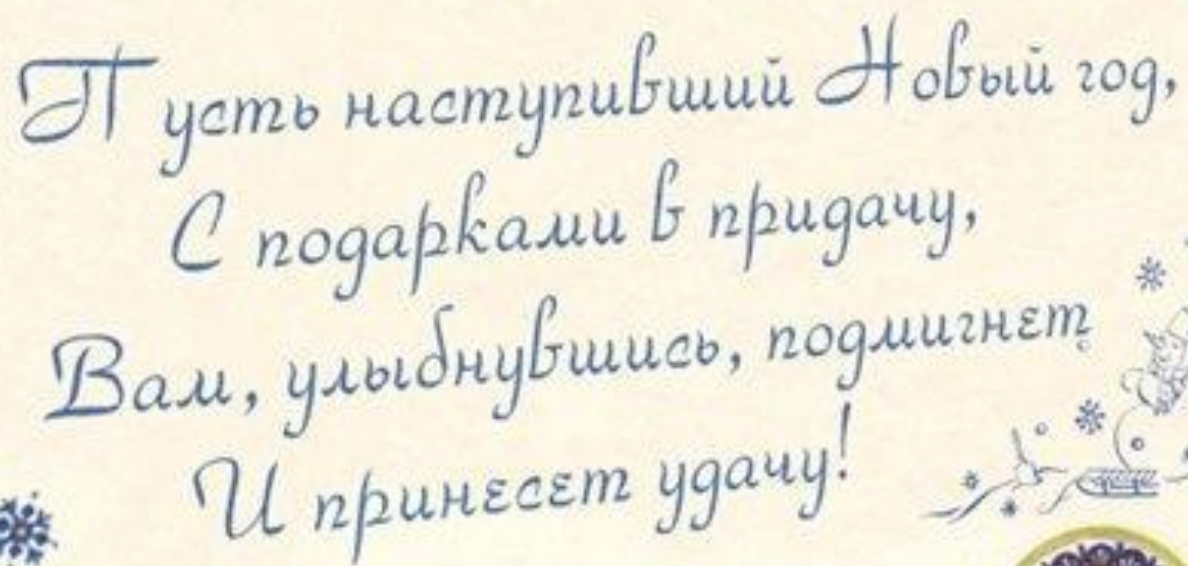 Пусть наступивший Новый год,
С подарками в придачу,
Вам, улыбнувшись, подмигнет
И принесет удачу!